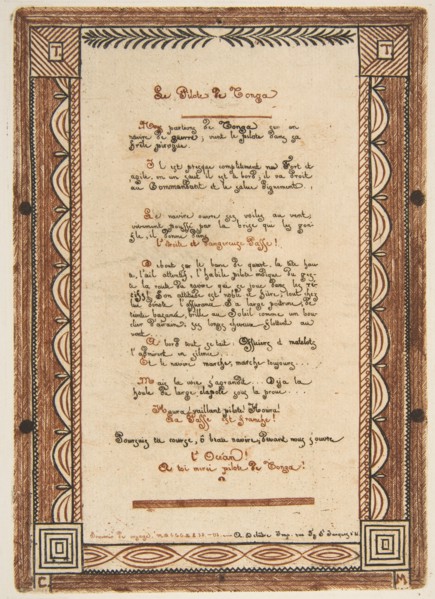 T T
Le Pilote de Tonga
Nous partions de Tonga sur un
navire de guerre; vint le pilote dans sa
frêle pirogue.
Il est presque complètement nu. Fort et
agile, en un saut il est à bord; il va droit
au Commandant et le salue dignement.
Le navire ouvre ses voiles au vent,
vivement poussé par la brise
il donne dans
l'étroite et dangereuse Passe!
Debout sur le banc de quart, la tête hau-
te, l'œil attentif, l'habile pilote indique du ges-
te la route du navire qui se joue dans les ré-
cifs! Son attitude est noble et fière; tout chez
lui. Sa large poitrine, de
teinte basanée, brille au Soleil comme un bou-
clier d'airain, ses longs cheveux flottent au
vent.
A bord tout se tait. Officiers et matelots
l'admirent en silence...
Et le navire marche, marche toujours....
Mais la voie s'agrandit... Déjà la
houle du large clapote sous la proue....
Houra! vaillant pilote! Houra!
La Passe est franchie!
Poursuis ta course, ô beau navire, devant nous s'ouvre
l'Océan!
A toi merci pilote de Tonga!
A. Delâtre Imp. rue St. Jacques
C M